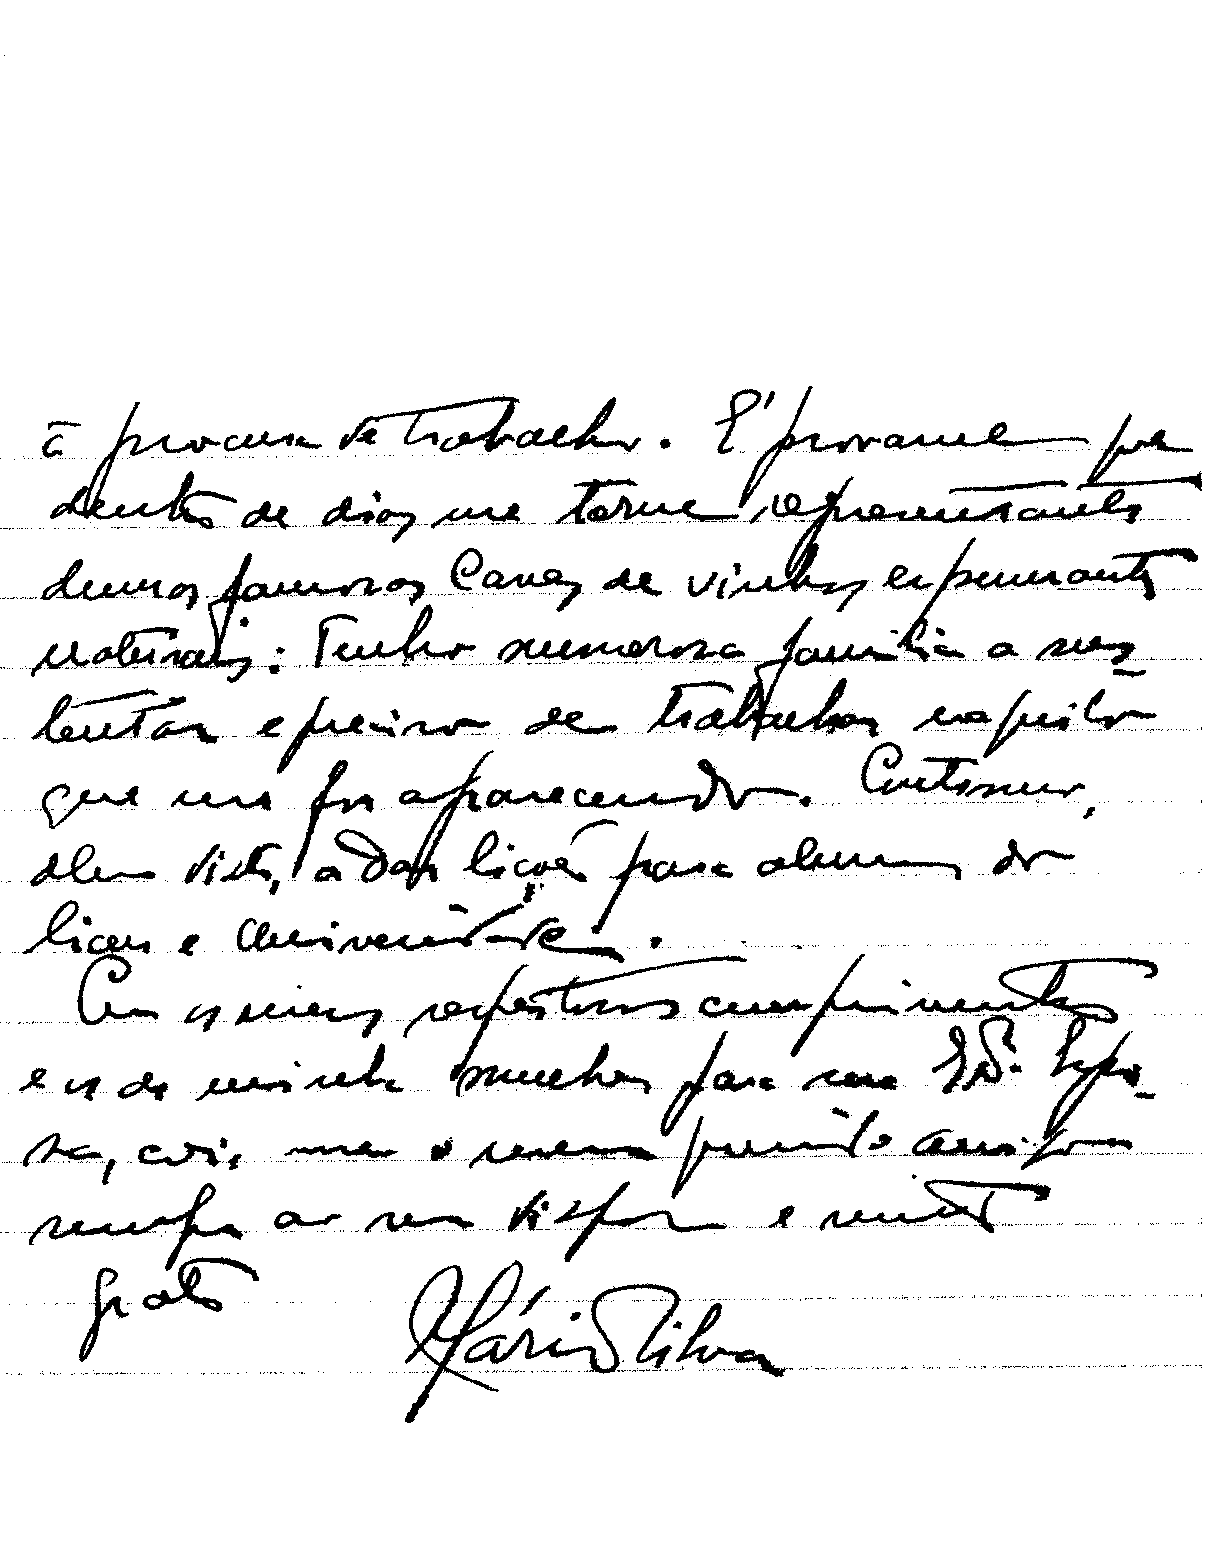 à procura de trabalho. É provavel que
dentro de dias me torne representante
dumas famosas Caves de vinhos espumantes
naturais: Tenho numerosa familia a sus-
tentar e preciso de trabalhar naquilo
que me for aparecendo. Continuo,
alem disto, a dar lições para alunos do
liceu e Universidade.
Com os meus respeitosos cumprimentos
e os da minha mulher para sua Exª. Espo-
sa, creia-me o seu muito amigo
sempre ao seu dispor e muito
grato Mário Silva